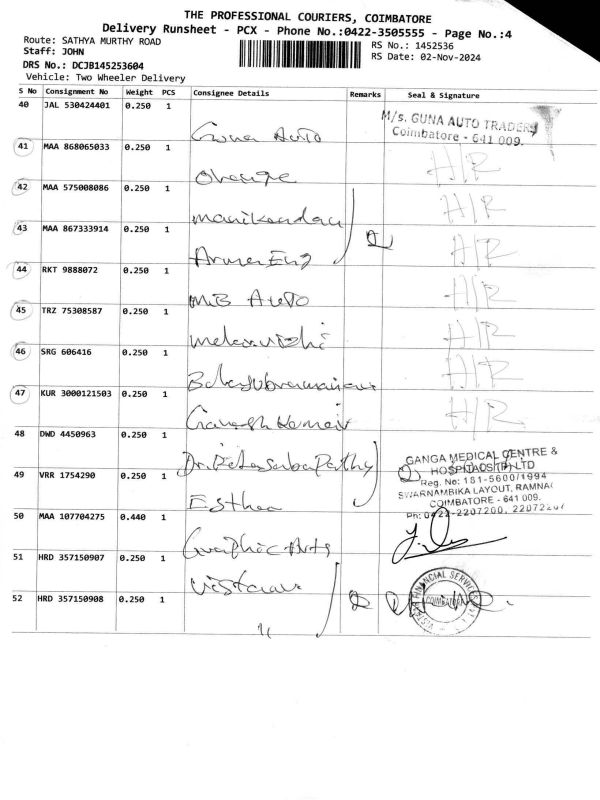 THE PROFESSIONAL COURIERS, COIMBATORE
Delivery Runsheet - PCX - Phone No.:0422-3505555 - Page No.:4
Route: SATHYA MURTHY ROAD
RS No.: 1452536
Staff: JOHN
RS Date: 02-Nov-2024
DRS No.: DCJB145253604
Vehicle: Two Wheeler Delivery
S No Consignment No Weight PCS Consignee Details Remarks Seal & Signature
40 JAL 530424401 0.250 1 Guna Auto
M/s. GUNA AUTO TRADERS
Coimbatore - 641 009.
41 MAA 868065033 0.250 1 Orange H/R
42 MAA 575008086 0.250 1 Manikandan H/R
43 MAA 867333914 0.250 1 Armen Eng H/R
44 RKT 9888072 0.250 1 MB Auto H/R
45 TRZ 75308587 0.250 1 H/R
46 SRG 606416 0.250 1 H/R
47 KUR 3000121503 0.250 1 H/R
48 DWD 4450963 0.250 1
GANGA MEDICAL CENTRE &
HOSPITALS (P) LTD
Reg. No: 181-5600/1994
SWARNAMBIKA LAYOUT, RAMNA
COIMBATORE - 641 009.
Ph: 0422-2207200,
49 VRR 1754290 0.250 1 Esther
50 MAA 107704275 0.440 1 Graphic Arts
51 HRD 357150907 0.250 1 Vistaar
52 HRD 357150908 0.250 1 "
FINANCIAL SERVICES
COIMBATORE